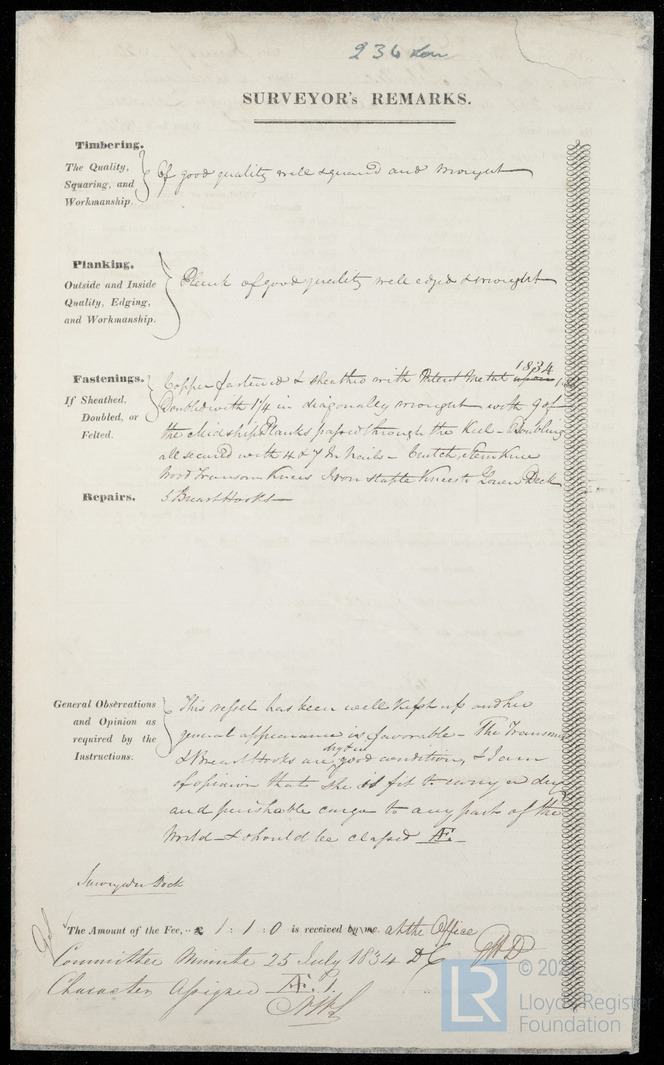 236 Lon
SURVEYOR's REMARKS.
Timbering.
The Quality,
Squaring, and
Workmanship.
Of good quality well squared and wrought
Planking.
Outside and Inside
Quality, Edging,
and Workmanship.
Plank of good quality well edged & wrought
Fastenings.
If Sheathed,
Doubled, or
Felted.
1834
Copper fastened & sheathed with Patent Metal
Doubled with 1 1/4 in diagonally wrought with 9 of
the Midship Planks passed through the Keel - Doubling
all secured with 4 & 7 In Nails - Crutch, Stem Knee
Wood Transom Knees Iron staple Knees to Lower Deck
Repairs.
5 Breast Hooks
General Observations
and Opinion as
required by the
Instructions.
This vessel has been well Kept up and her
general appearance is favorable - The Transoms
& Breast Hooks are good condition, & I am
of opinion that she is fit to carry a dry
and perishable cargo to any part of the
World - & should be classed Æ
Surveyed in Dock
The Amount of the Fee, .. £ 1 : 1 : 0 is received by me at the Office
Committee Minute 25 July 1834
Character Assigned Æ. 1.
© 202
Lloyd's Register
Foundation
LR